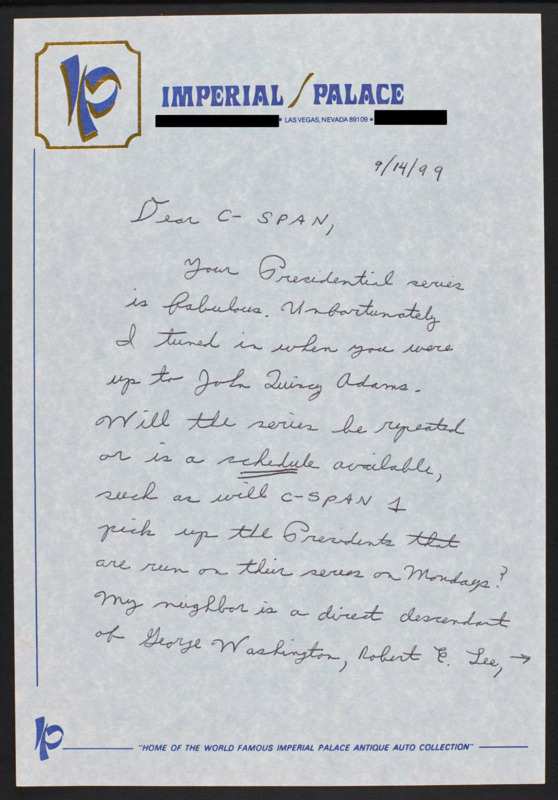 IP
IMPERIAL / PALACE
• LAS VEGAS, NEVADA 89109 •
9/14/99
Dear C-SPAN,
Your Presidential series
is fabulous. Unfortunately
I tuned in when you were
up to John Quincy Adams.
Will the series be repeated
or is a schedule available,
such as will C-SPAN 1
pick up the Presidents that
are run on their series on Mondays?
My neighbor is a direct descendant
of George Washington, Robert E. Lee, →
IP
"HOME OF THE WORLD FAMOUS IMPERIAL PALACE ANTIQUE AUTO COLLECTION"